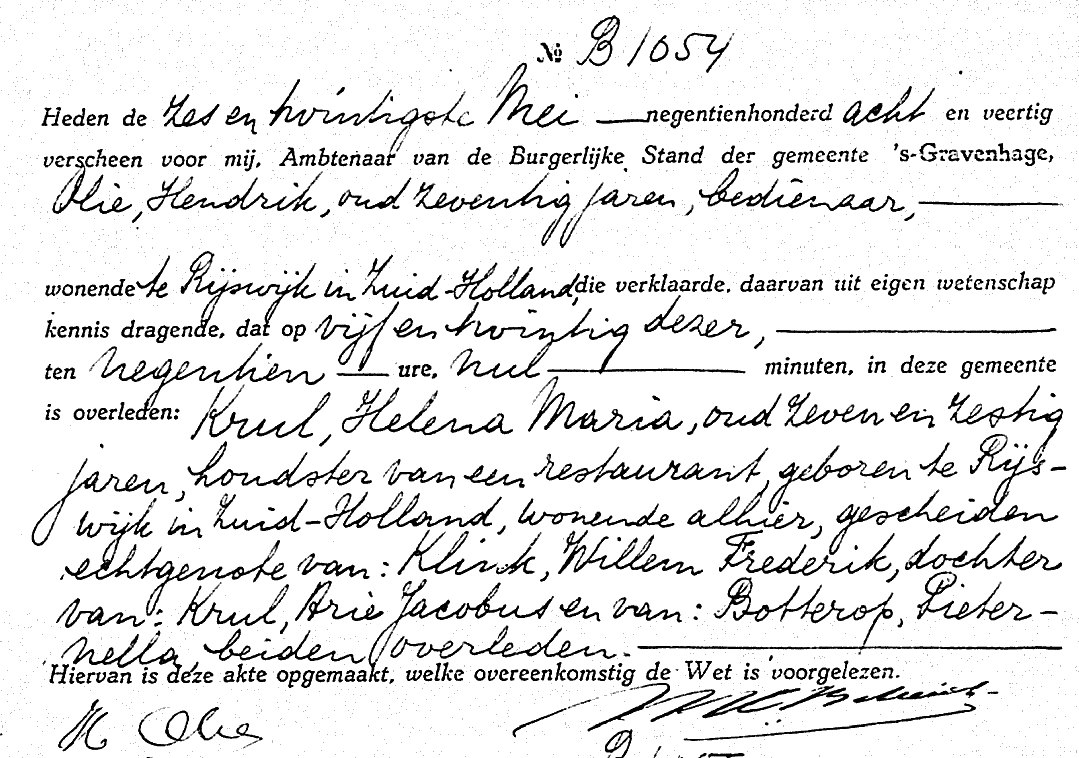 № B 1054
Heden de zes en twintigste Mei — negentienhonderd acht en veertig
verscheen voor mij, Ambtenaar van de Burgerlijke Stand der gemeente 's-Gravenhage,
Olie, Hendrik, oud zeventig jaren, bedienaar,
wonende te Rijswijk in Zuid-Holland, die verklaarde, daarvan uit eigen wetenschap
kennis dragende, dat op vijf en twintig dezer,
ten negentien — ure, nul — minuten, in deze gemeente
is overleden: Krul, Helena Maria, oud zeven en zestig
jaren, houdster van een restaurant, geboren te Rijs-
wijk in Zuid-Holland, wonende alhier, gescheiden
echtgenote van: Klink, Willem Frederik, dochter
van: Krul, Arie Jacobus en van: Botterop, Pieter-
nella, beiden overleden.
Hiervan is deze akte opgemaakt, welke overeenkomstig de Wet is voorgelezen.
H Olie